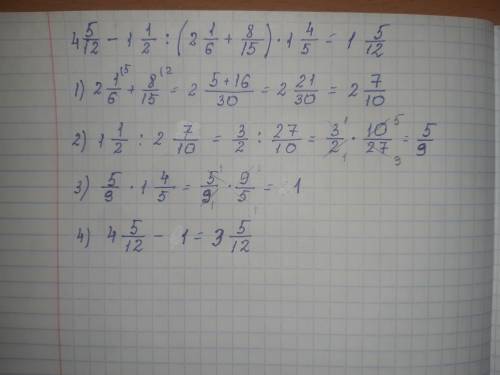 4 5/12 − 1 1/2 : (2 1/6 + 8/15) · 1 4/5 = 1 5/12
1) 2 1/6 (5 + 8/15 (2 = 2 5+16/30 = 2 21/30 = 2 7/10
2) 1 1/2 : 2 7/10 = 3/2 : 27/10 = 3/2 · 10/27 = 5/9
3) 5/9 · 1 4/5 = 5/9 · 9/5 = 1
4) 4 5/12 − 1 = 3 5/12